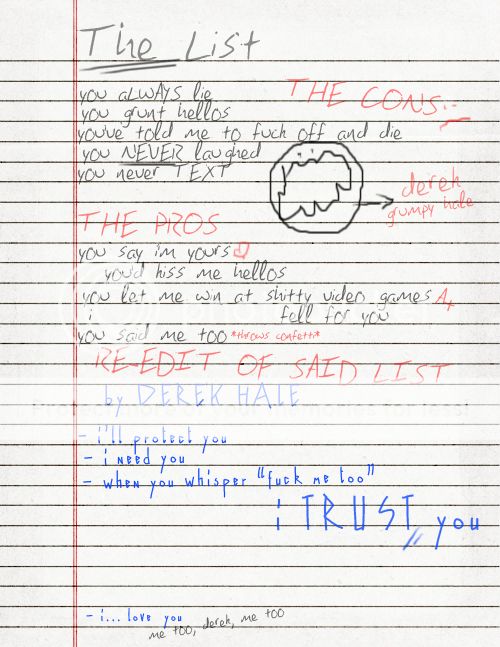 The List
THE CONS:-
you ALWAYS lie
you grunt hellos
you've told me to fuck off and die
you NEVER laughed
you never TEXT
derek
grumpy hale
THE PROS
you say i'm yours
you'd kiss me hellos
you let me win at shitty video games A+
i fell for you
you said me too *throws confetti*
RE-EDIT OF SAID LIST
by DEREK HALE
- i'll protect you
- i need you
- when you whisper "fuck me too"
i TRUST you
- i... love you
me too, derek, me too